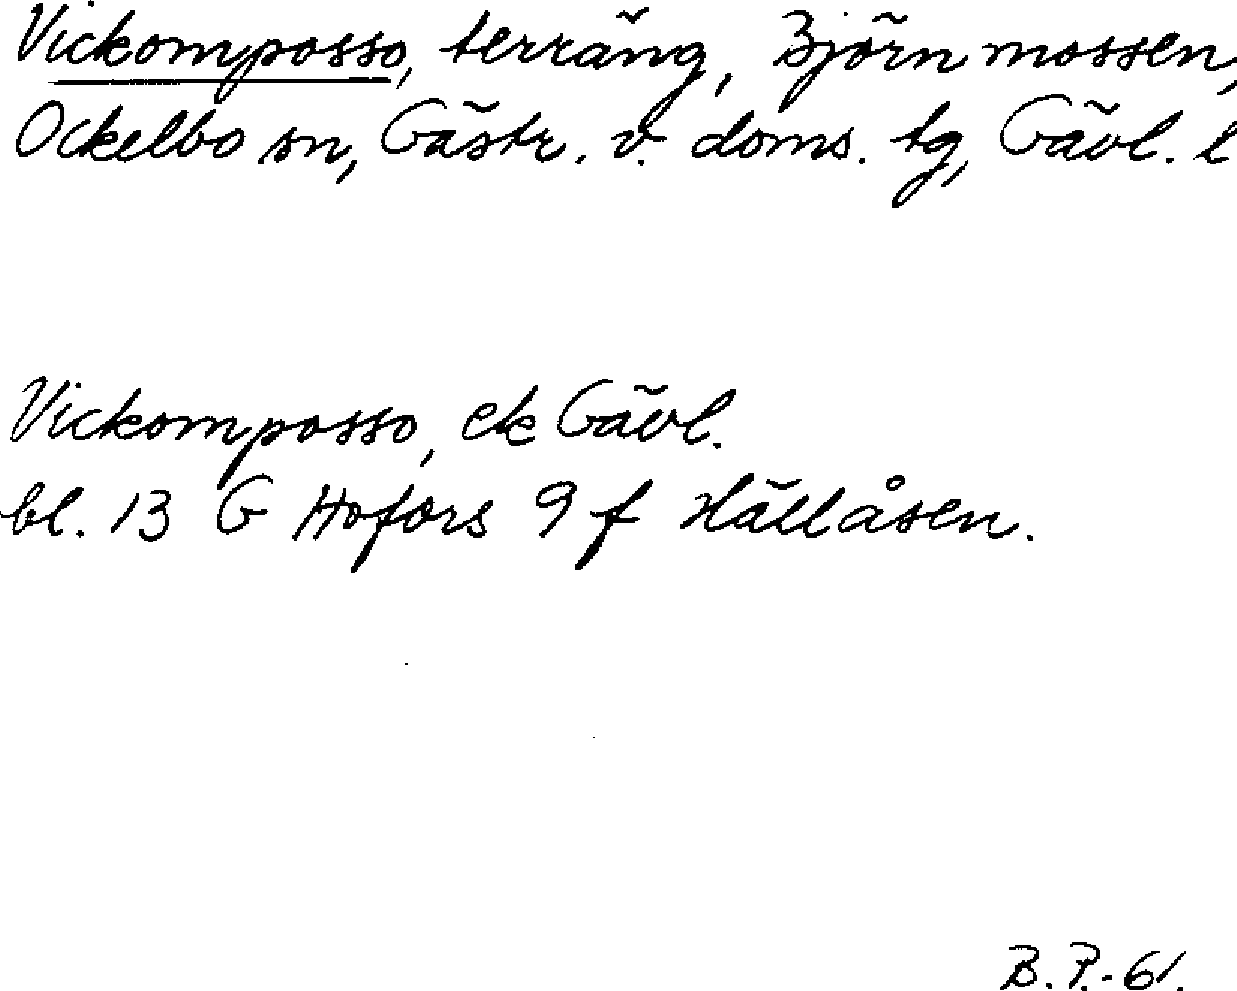 Vickomposso, terräng, Björnmossen,
Ockelbo sn, Gästr. v. doms. tg, Gävl. l
Vickomposso, ek Gävl.
bl. 13 G Hofors 9 f Hällåsen.
B. P.-61.